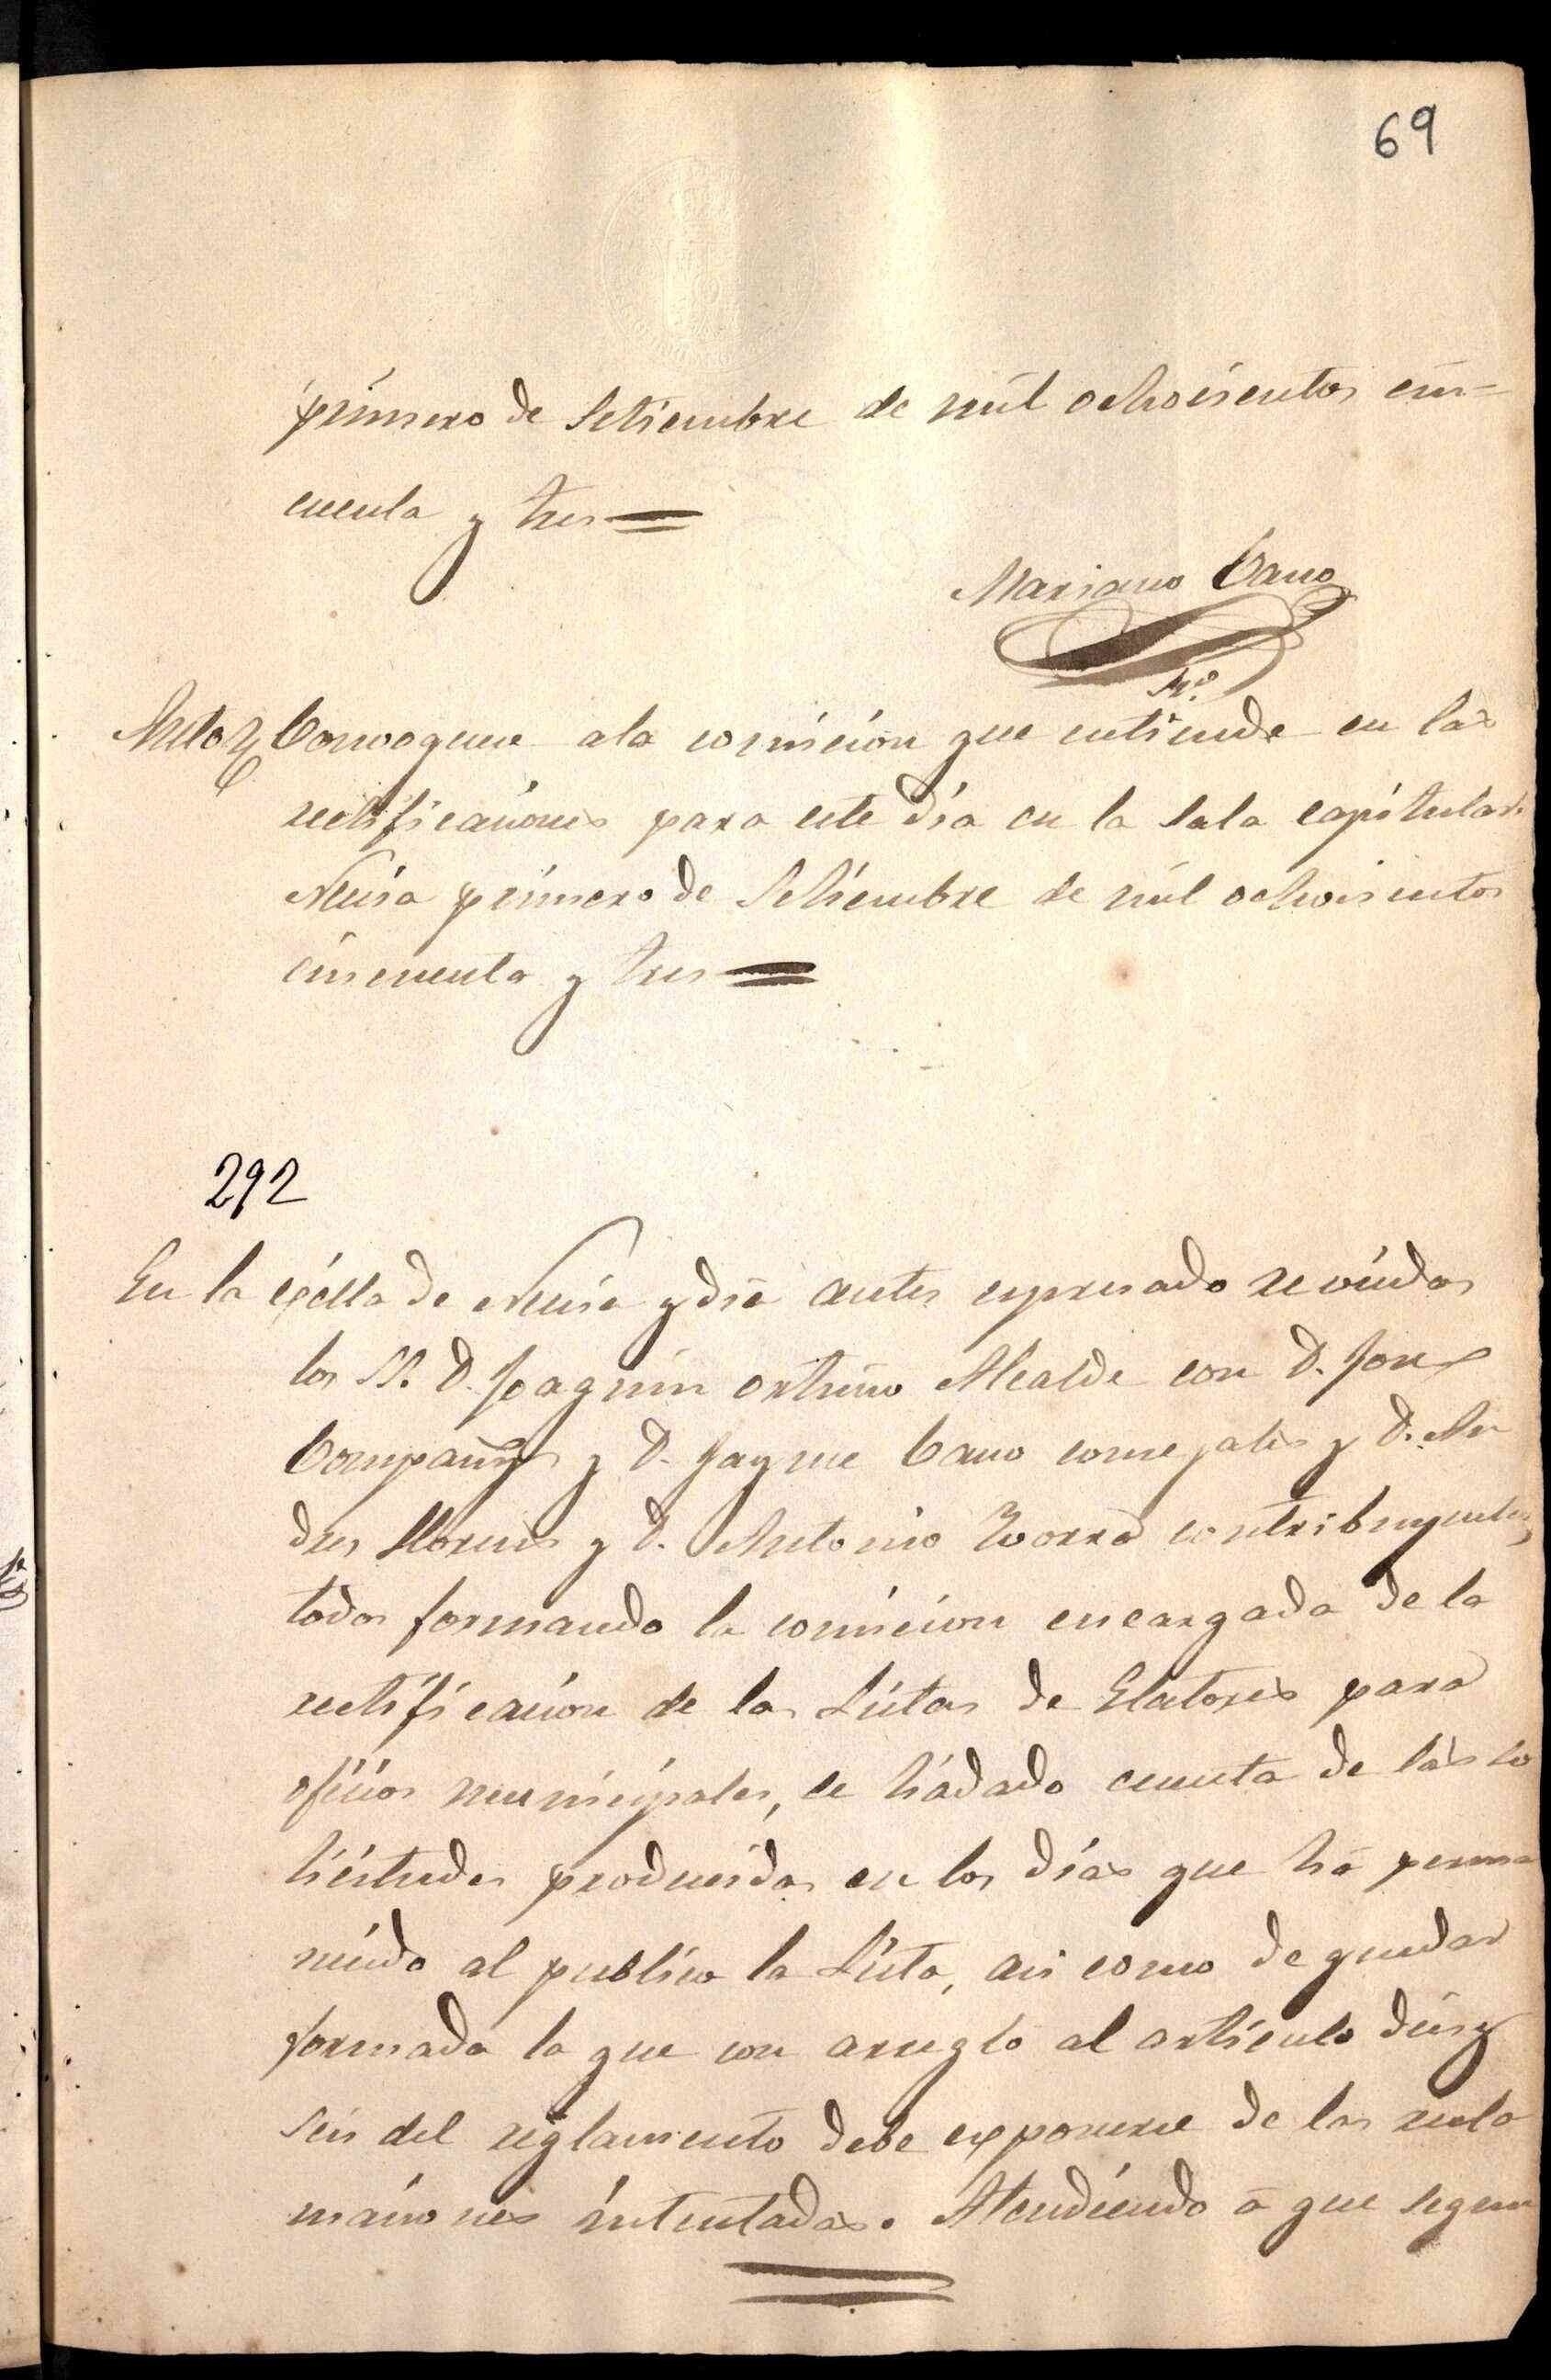 69
primero de Setiembre de mil ochocientos cin=
cuenta y tres
Mariano Cano
Srio
Auto} Convoquese a la comicion que entiende en las
rectificaciones para este dia en la Sala capitular.
Nucia primero de Setiembre de mil ochocientos
cincuenta y tres
292
En la villa de Nucia y dia antes espresado reunidos
los SS. D. Joaquin ortuño Alcalde con D. Jose
Compañy y D. Jayme Cano concejales y D. An
dres Llorens y D. Antonio Zorra contribuyentes,
todos formando la comicion encargada de la
rectificacion de las Listas de Electores para
oficios municipales, se há dado cuenta de las so
licitudes producidas en los dias que há perma
necido al publico la Lista, asi como de quedar
formada la que con arreglo al articulo diez y
seis del reglamento debe exponerse de las recla
maciones intentadas. Atendiendo á que segun